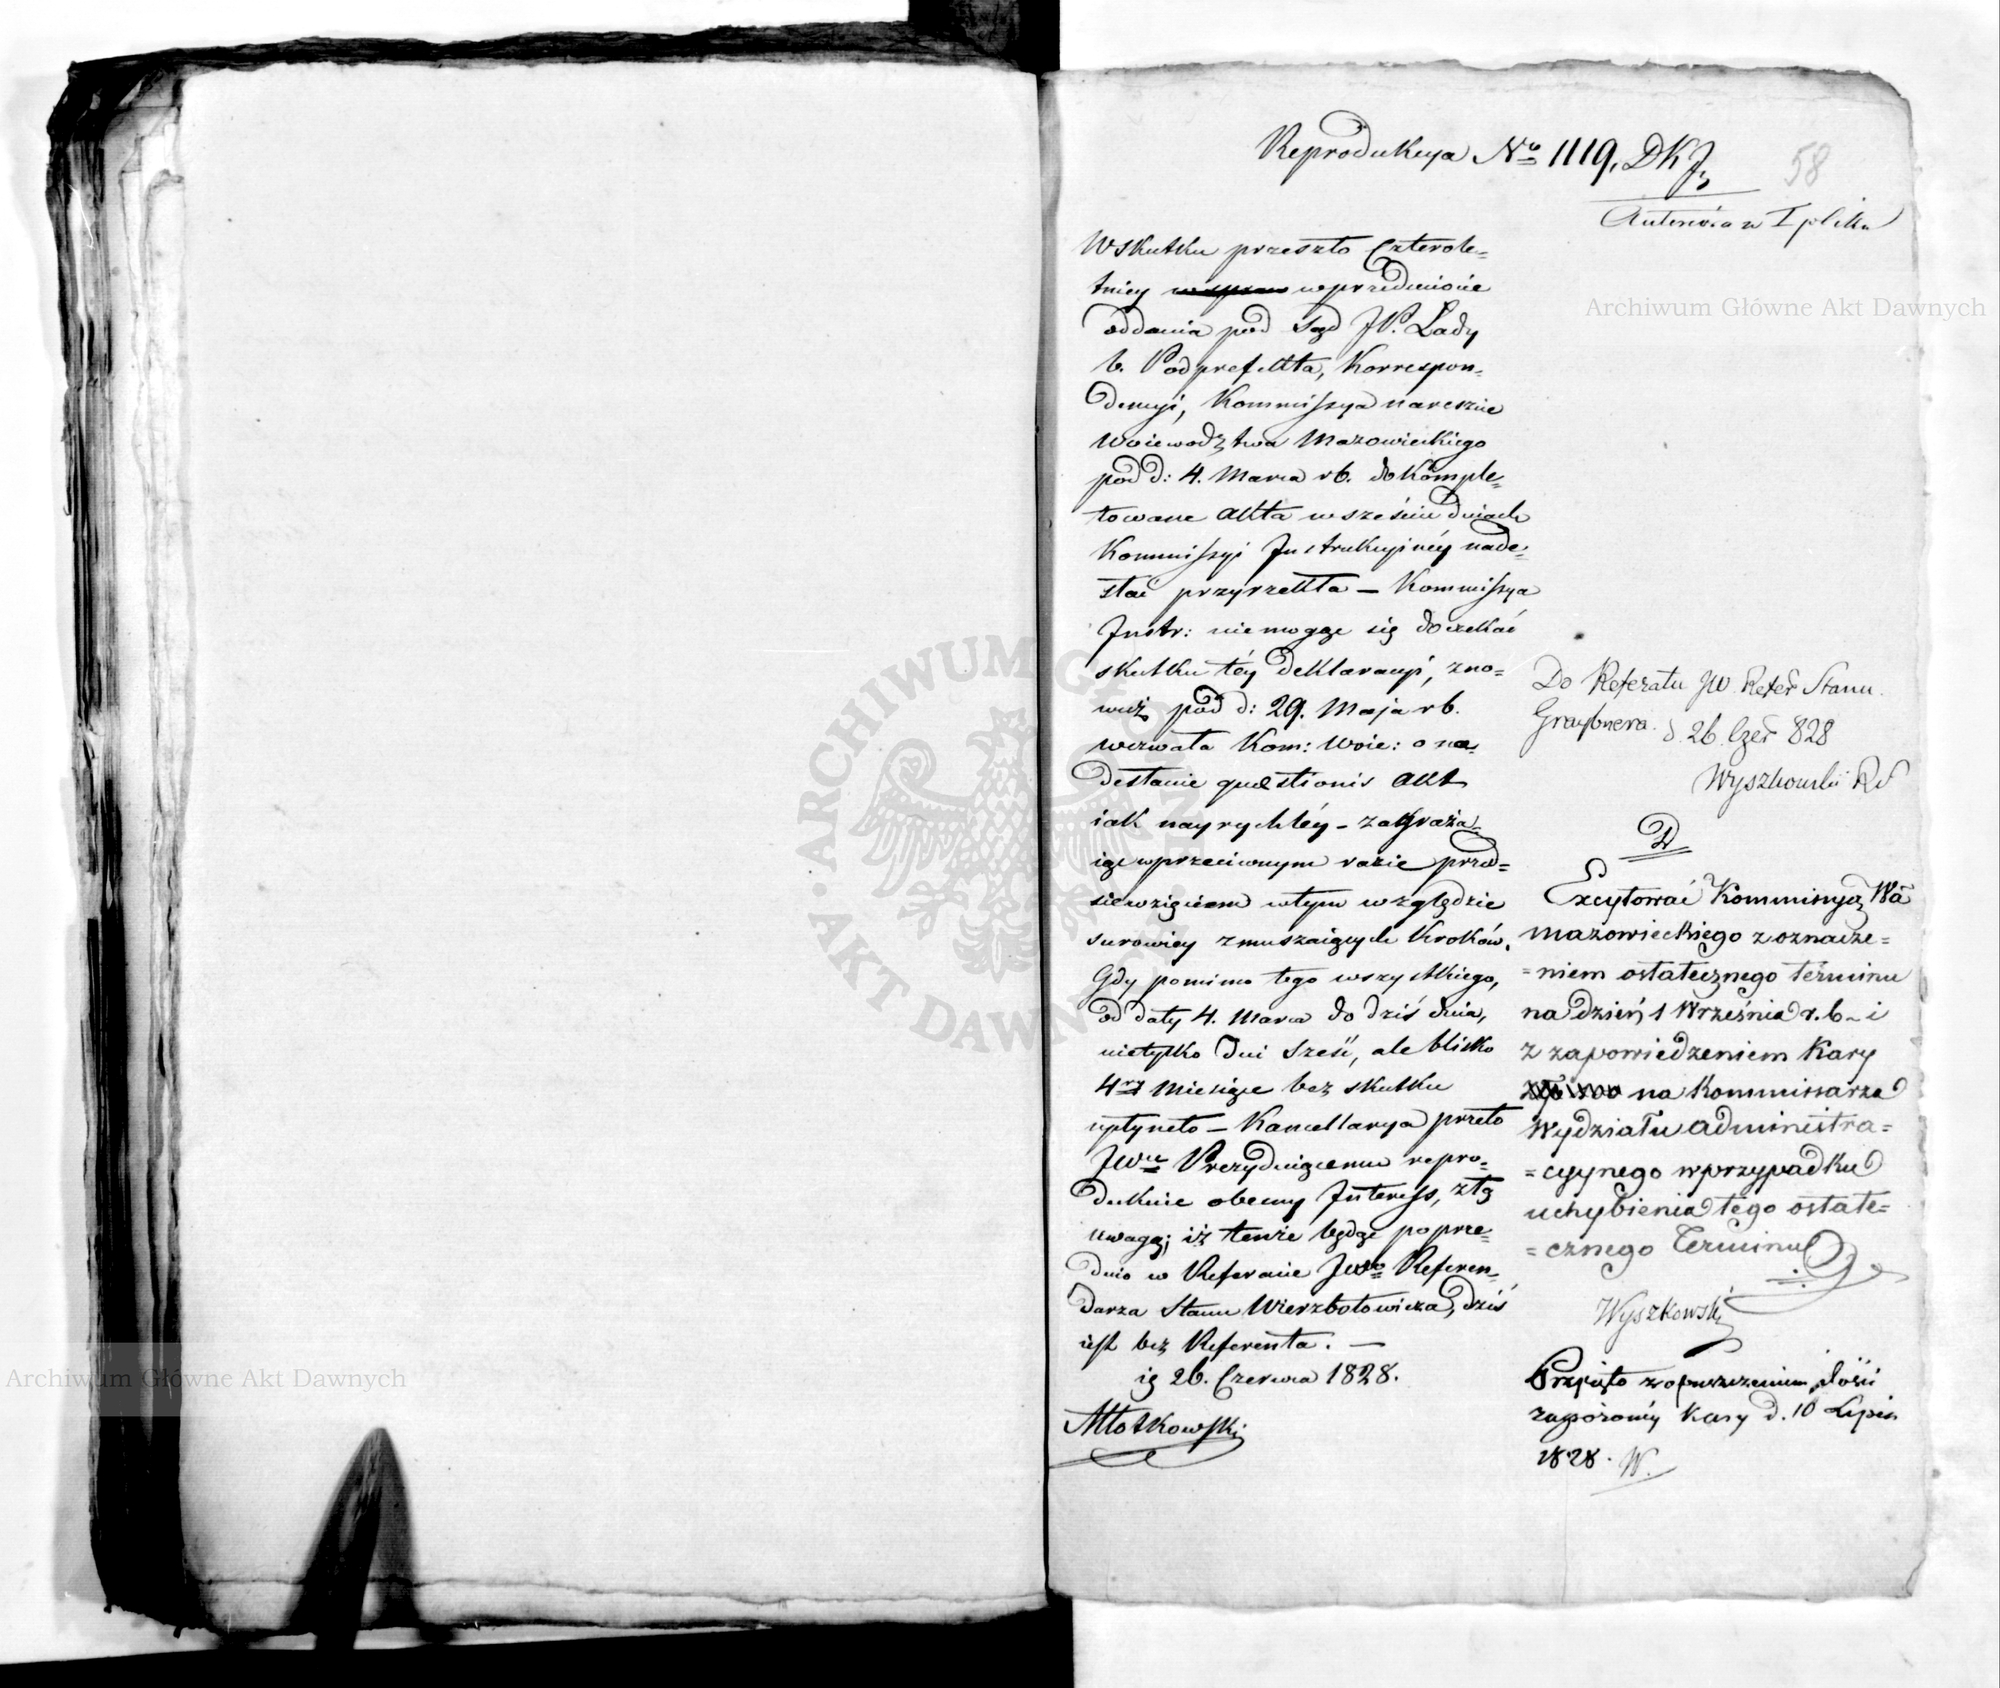 Reprodukcya No 1119, DKJ,
58
Anteriora w I plike
Wskutku przeszło Czterole=
tniey wprzedmiocie
oddania pod Sąd JP. Lady
b. Podprefekta, Korrespon=
dencyi, Kommissya nareszcie
Woiewodztwa Mazowieckiego
pod d: 4. Marca rb. dokomple=
towane Akta w sześciu dniach
Kommissyi Instrukcyinéy nade=
słać przyrzekła – Kommissya
Instr: niemogąc się doczekać
skutku téy deklaracyi, zno=
wuż pod d: 29. Maja rb.
wezwała Kom: Woie: o na=
desłanie quæstionis Akt
iak nayrychléy – zagraża=
iąc wprzeciwnym razie przed=
sięwzięciem wtym względzie
surowiey zmuszaiących Kroków.
Gdy pomimo tego wszystkiego,
od daty 4. Marca do dziś dnia,
nietylko dni sześć, ale blisko
4ry Miesiące bez skutku
upłyneło – Kancellarya przeto
JWmu Prezyduiącemu repro=
dukuie obecny Interess, z tą
uwagą; iż tenże będąc poprze=
dnio w Referacie JWgo Referen=
darza Stanu Wierzbołowicza, dziś
iest bez Referenta. —
ię 26. Czerwca 1828.
Młotkowski
Do Referatu JW. Refer Stanu
Graybnera. d. 26. Czer 828
Wyszkowski RS
D
Excytować Kommissyą Wa
Mazowieckiego z oznacze=
=niem ostatecznego terminu
na dzień 1 Września r.b – i
z zapowiedzeniem Kary
na Kommissarza
Wydziału Administra=
=cyynego wprzypadku
uchybienia tego ostate=
=cznego Terminu
Wyszkowski
Przyięto z opuszczeniem ilości
zagrożonéy kary d. 10 Lipca
1828. W.
Archiwum Główne Akt Dawnych
Archiwum Główne Akt Dawnych
ARCHIWUM GŁÓWNE AKT DAWNYCH